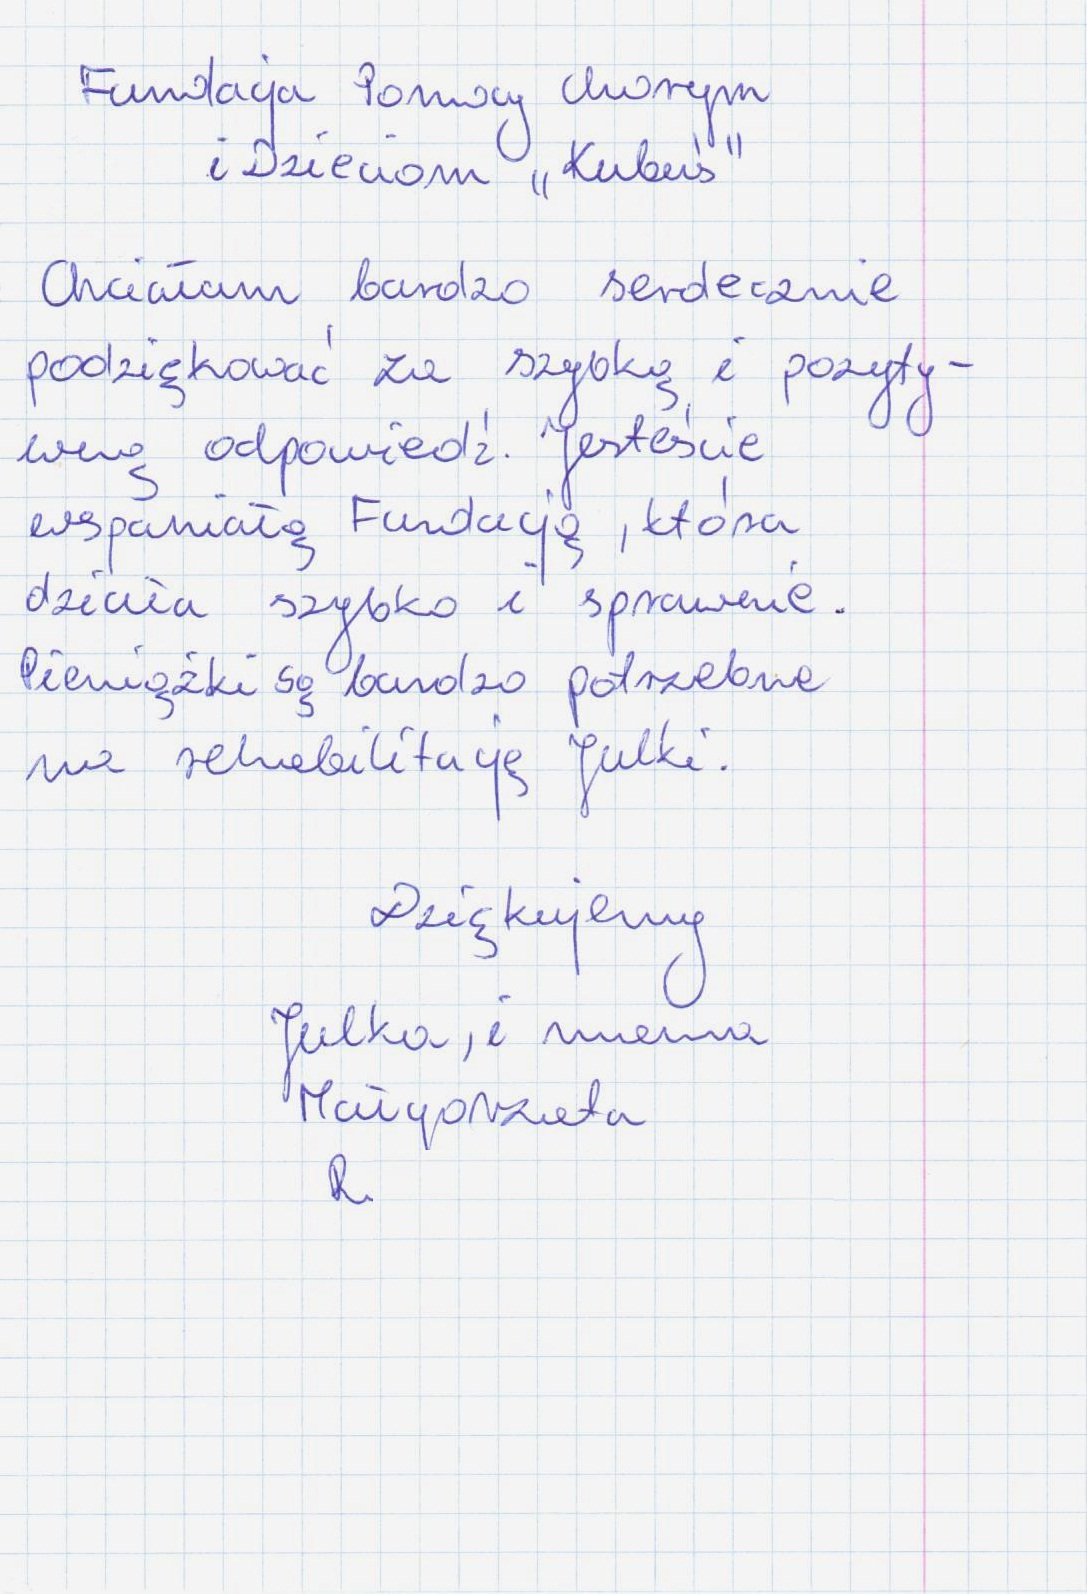 Fundacja Pomocy Chorym
i Dzieciom „Kubuś"
Chciałam bardzo serdecznie
podziękować za szybką i pozyty-
wną odpowiedź. Jesteście
wspaniałą Fundacją, która
działa szybko i sprawnie.
Pieniążki są bardzo potrzebne
na rehabilitację Julki.
Dziękujemy
Julka, i mama
Małgorzata
R.